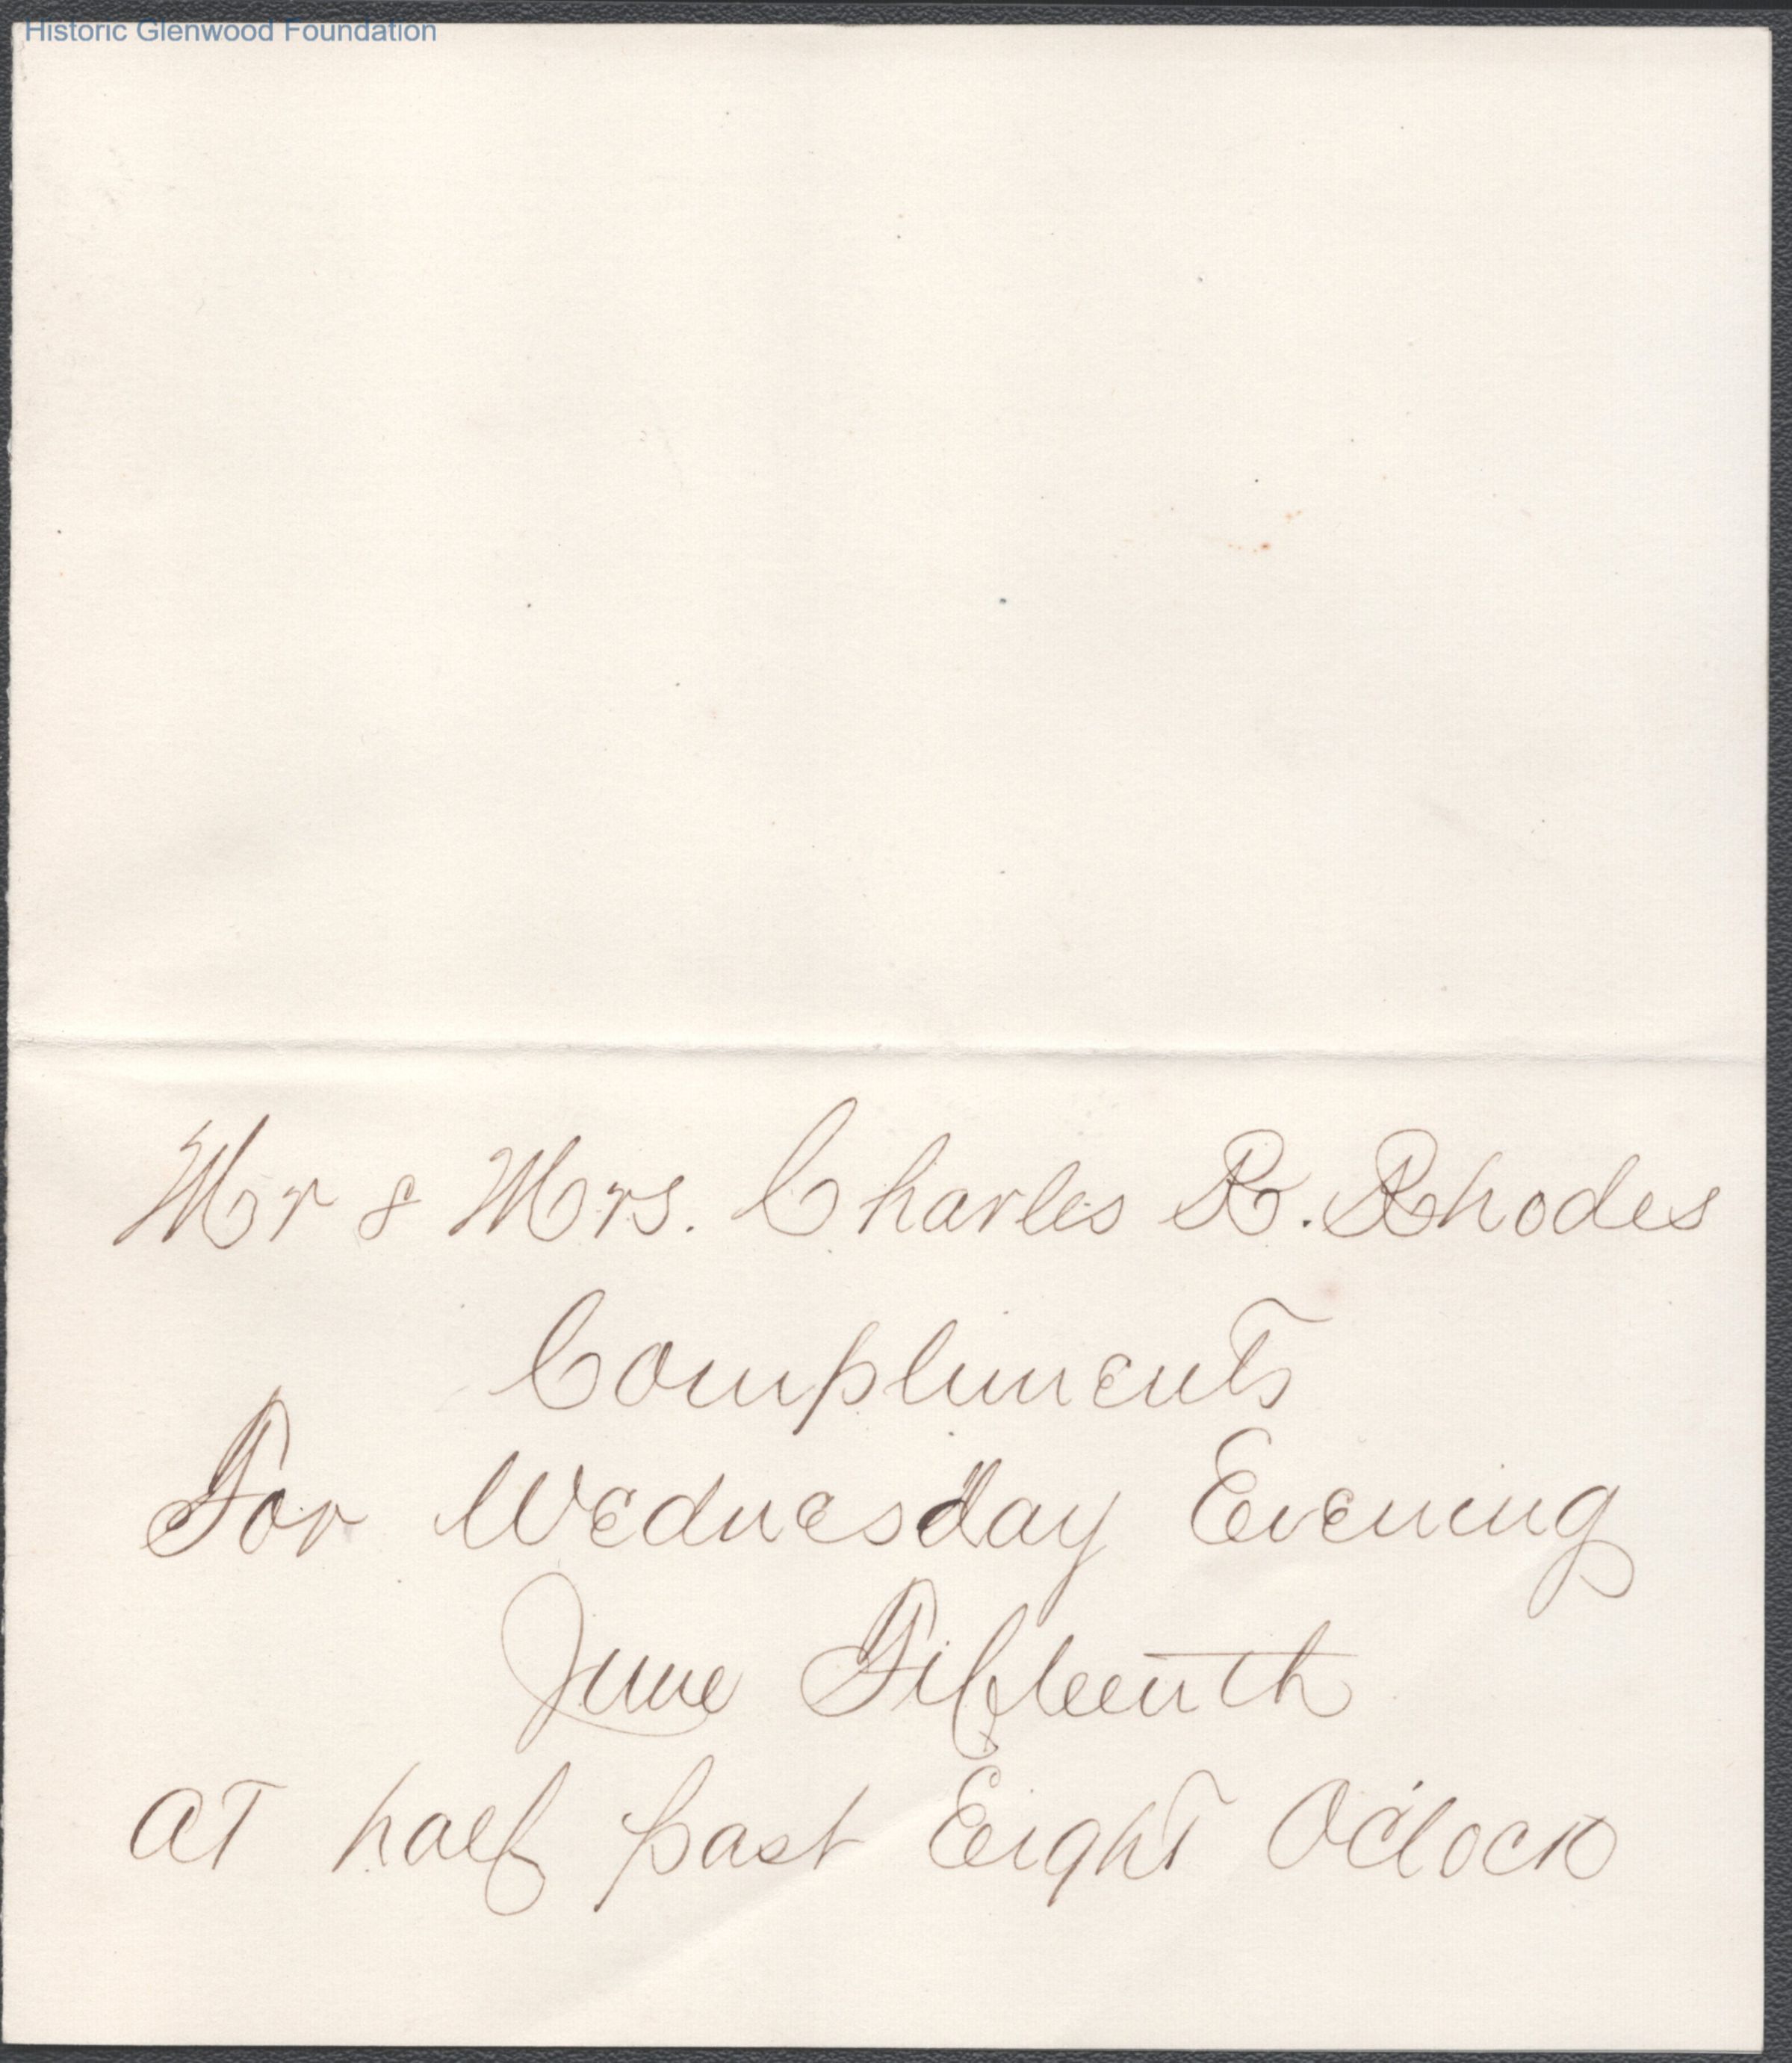 Historic Glenwood Foundation
Mr & Mrs. Charles R. Rhodes
Compliments
For Wednesday Evening
June Fifteenth
at half past Eight O'clock